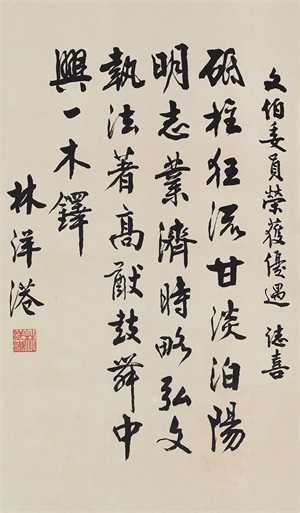 文伯委員榮獲優遇誌喜
砥柱狂流甘淡泊陽
明志業濟時略弘文
執法著高猷鼓舞中
興一木鐸
林洋港